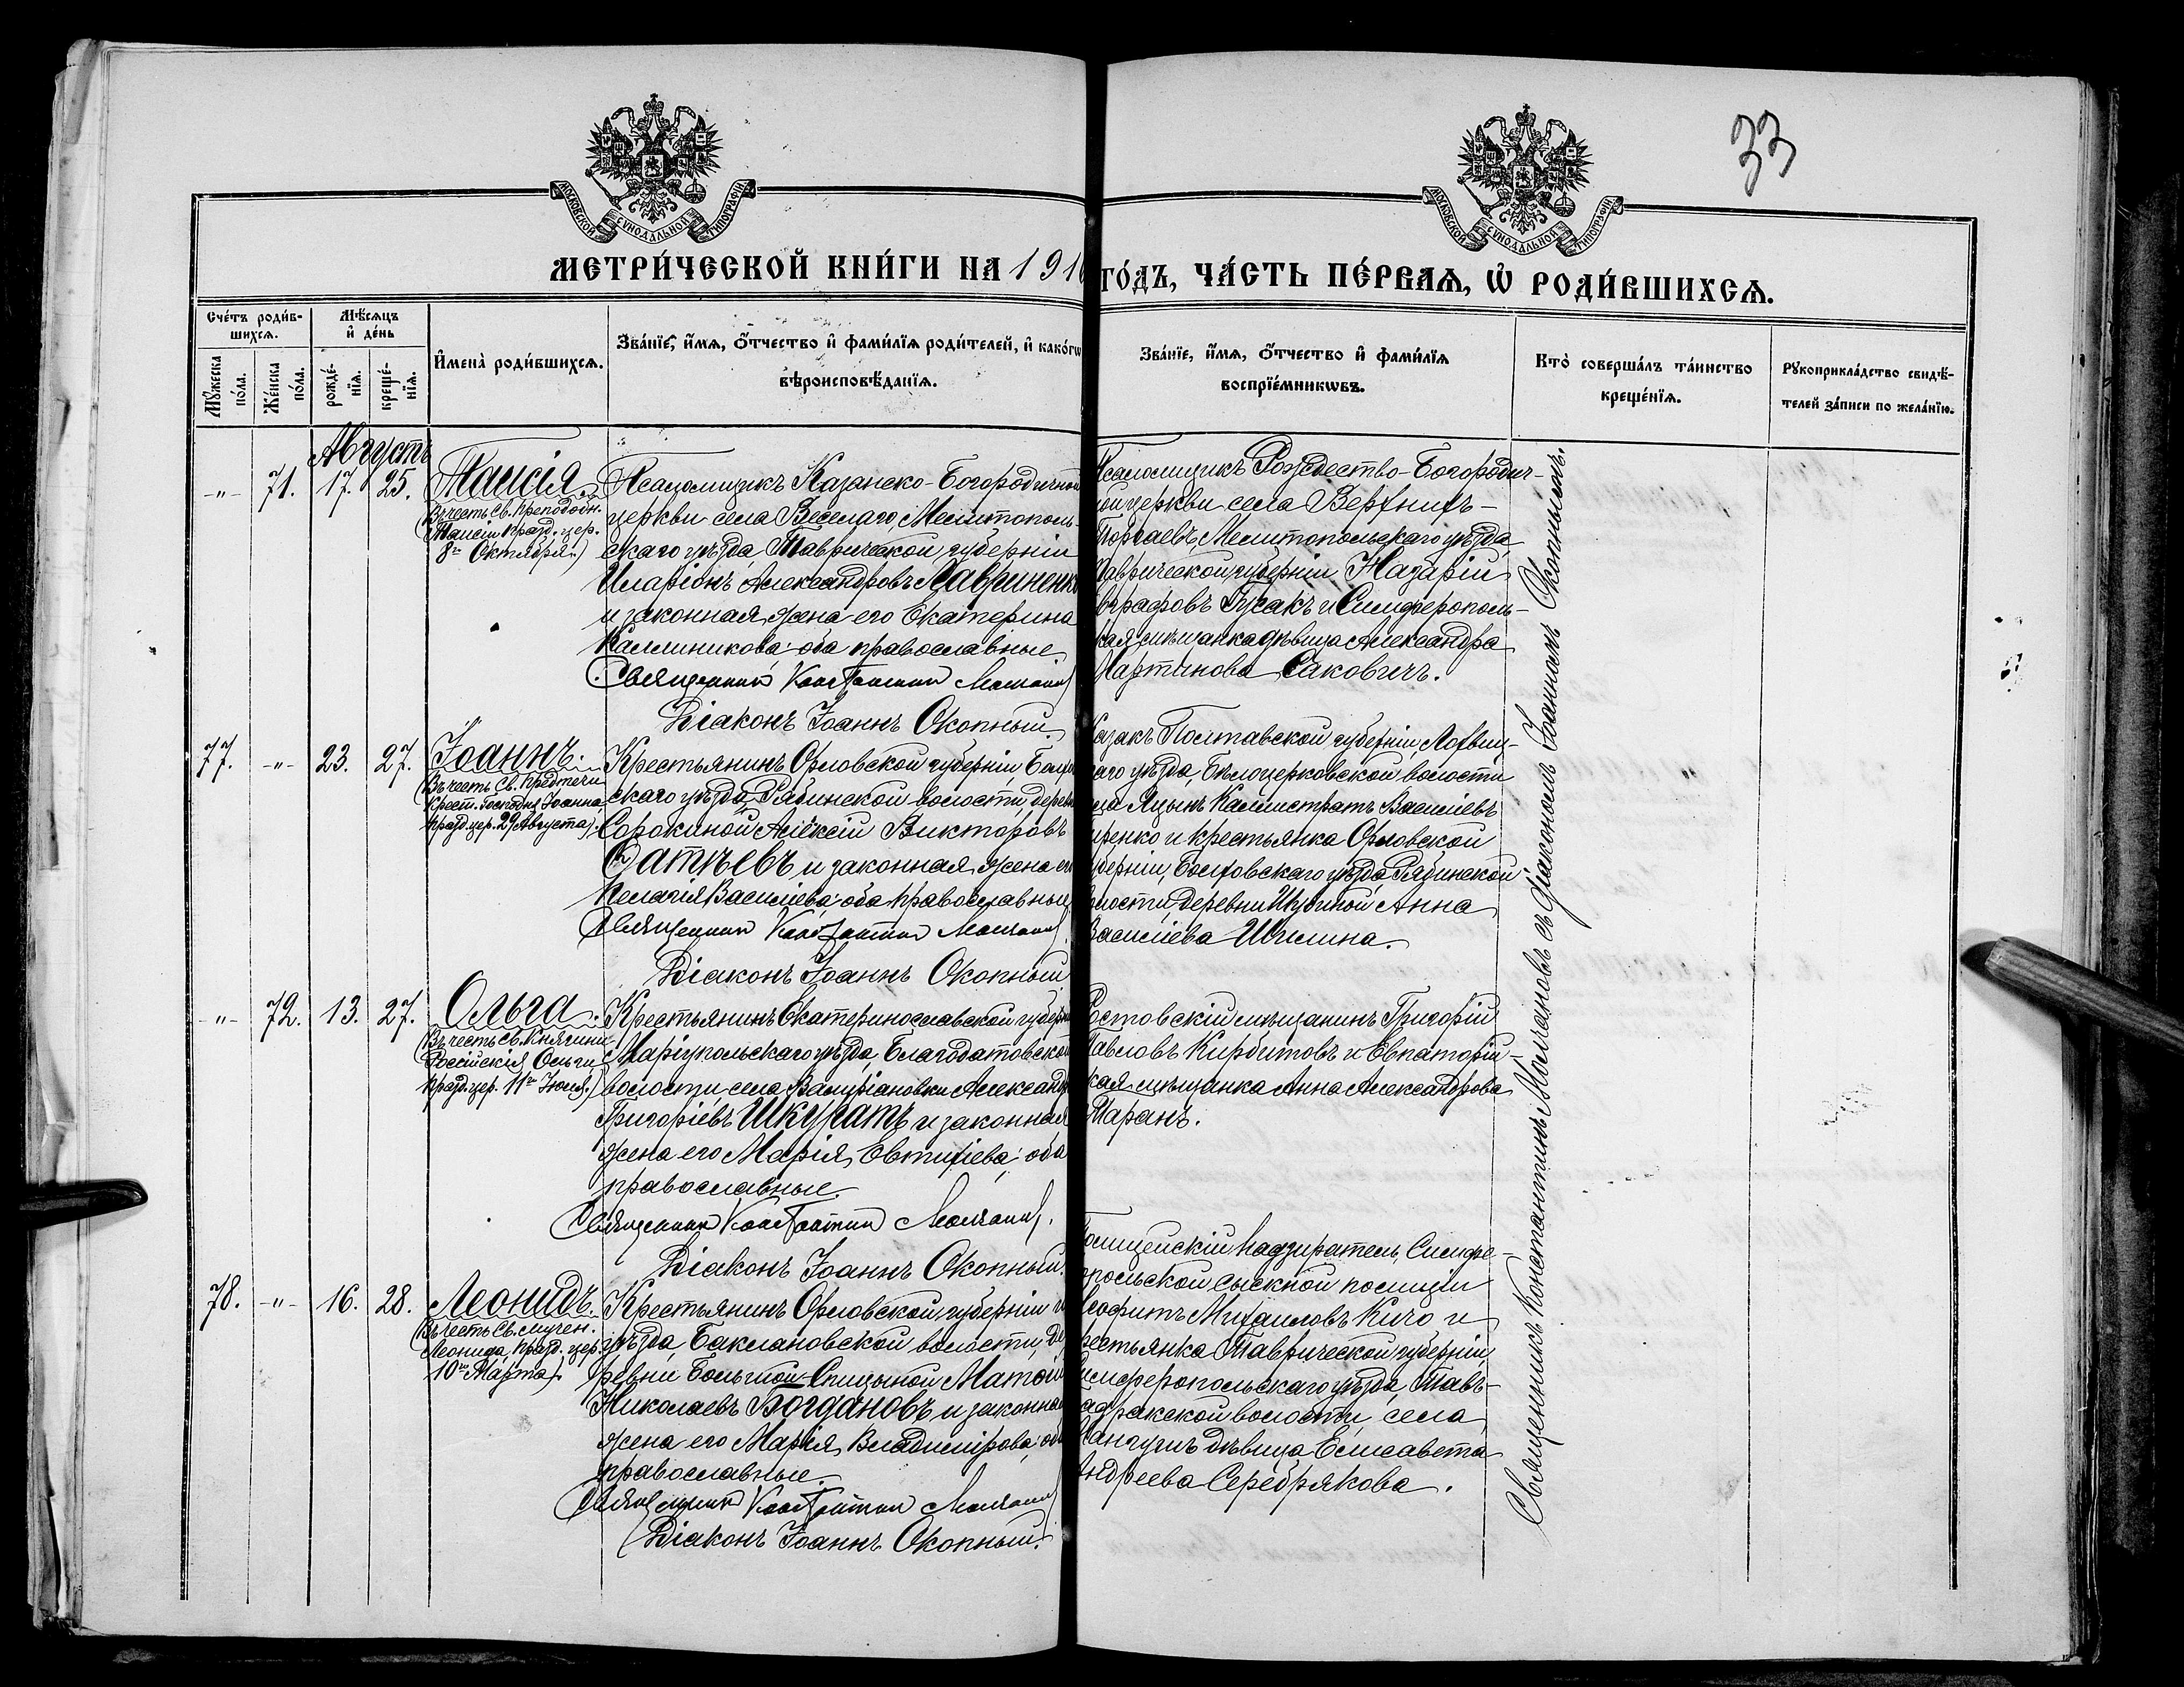 33
МОСКОВСКОЙ СУНОДАЛЬНОЙ ТИПОГРАФІИ
МОСКОВСКОЙ СУНОДАЛЬНОЙ ТИПОГРАФІИ
МЕТРИ́ЧЕСКОЙ КНИ́ГИ НА 191
ГО́ДЪ, ЧА́СТЬ ПЕ́РВАѦ, Ѡ҆ РОДИ́ВШИХСѦ.
Сче́тъ роди́в-
шихсѧ.
Мѣ́сяцъ
и҆ де́нь
Мꙋ́жеска
по́ла.
Же́нска
по́ла.
рожде́-
нїѧ.
креще́-
нїѧ.
И҆мена̀ роди́вшихсѧ.
Зва́нїе, и҆́мѧ, ѻ҆́тчество и҆ фами́лїѧ роди́телей, и҆ како́гѡ
вѣроисповѣ́данїѧ.
Зва́нїе, и҆́мѧ, ѻ҆́тчество и҆ фами́лїѧ
воспрїе́мникѡвъ.
Кто̀ соверша́лъ та́инство
креще́нїѧ.
Рꙋкоприкла́дство свидѣ́-
телей за́писи по жела́нїю.
Августъ
-"- 71. 17. 25. Таисія
(Въ честь Св. Преподобн.
Таисіи празд. цер.
8го Октября.)
Псаломщикъ Казанско-Богородичной
церкви села Веселаго, Мелитополь-
скаго уѣзда, Таврической губерніи
Иларіонъ Александровъ Лавриненк
и законная жена его Екатерина
Каллиникова: оба православные
Священникъ Константинъ Молчановъ
Діаконъ Іоаннъ Окопный.
Псаломщикъ Рождество-Богородич-
ной церкви села Верхнихъ-
Торгаевъ, Мелитопольскаго уѣзда,
Таврической губерніи Назарій
Евграфовъ Гусакъ и Симферополь-
ская мѣщанка дѣвица Александра
Мартинова Саковичъ.
77. -"- 23. 27. Іоаннъ.
(Въ честь Св. Предтечи
Крест. Господня Іоанна
празд. цер. 29 Августа).
Крестьянинъ Орловской губерніи Болхо
скаго уѣзда, Рябинской волости, дерев
Сорокиной Алексій Викторовъ
и законная жена ег
Пелагія Василіева; оба православные
Священникъ Константинъ Молчановъ.
Діаконъ Іоаннъ Окопный
Казакъ Полтавской губерніи, Лохвиц-
каго уѣзда, Бѣлоцерковской волости
Каллистратъ Василіевъ
ренко и крестьянка Орловской
губерніи, Болховскаго уѣзда Рябинской
волости, деревни Анна
Василіева
-"- 72. 13. 27. Ольга.
(Въ честь Св. Княгини
Россійскія Ольги
празд. цер. 11го Іюля.)
Крестьянинъ Екатеринославской губерн
Маріупольскаго уѣзда, Благодатовской
волости, села Валеріановки Александ
Григоріевъ Шкуратъ и законная
жена его Марія Евтихіева; оба
православные.
Священникъ Константинъ Молчановъ.
Діаконъ Іоаннъ Окопный.
Ростовскій мѣщанинъ Григорій
Павловъ Кирбитовъ и Евпаторій-
ская мѣщанка Анна Александрова
Таранъ.
78. -"- 16. 28. Леонидъ.
(Въ честь Св. мучен.
Леонида, празд. цер.
10го Марта).
Крестьянинъ Орловской, губерніи и
уѣзда, Баклановской волости, де
ревни Большой-Спицыной
Николаевъ Богдановъ и законная
жена его Марія Владимірова; оба
православные.
Священникъ Константинъ Молчановъ
Діаконъ Іоаннъ Окопный.
Полицейскій надзиратель, Симфе-
ропольской сыскной полиціи
Ѳеофитъ Михаиловъ Кичо и
крестьянка Таврической губерніи,
Симферопольскаго уѣзда, Тавъ-
волости, села
дѣвица Елисавета
Андреева Серебрякова.
Священникъ Константинъ Молчановъ съ діакономъ Іоанномъ Окопнымъ.